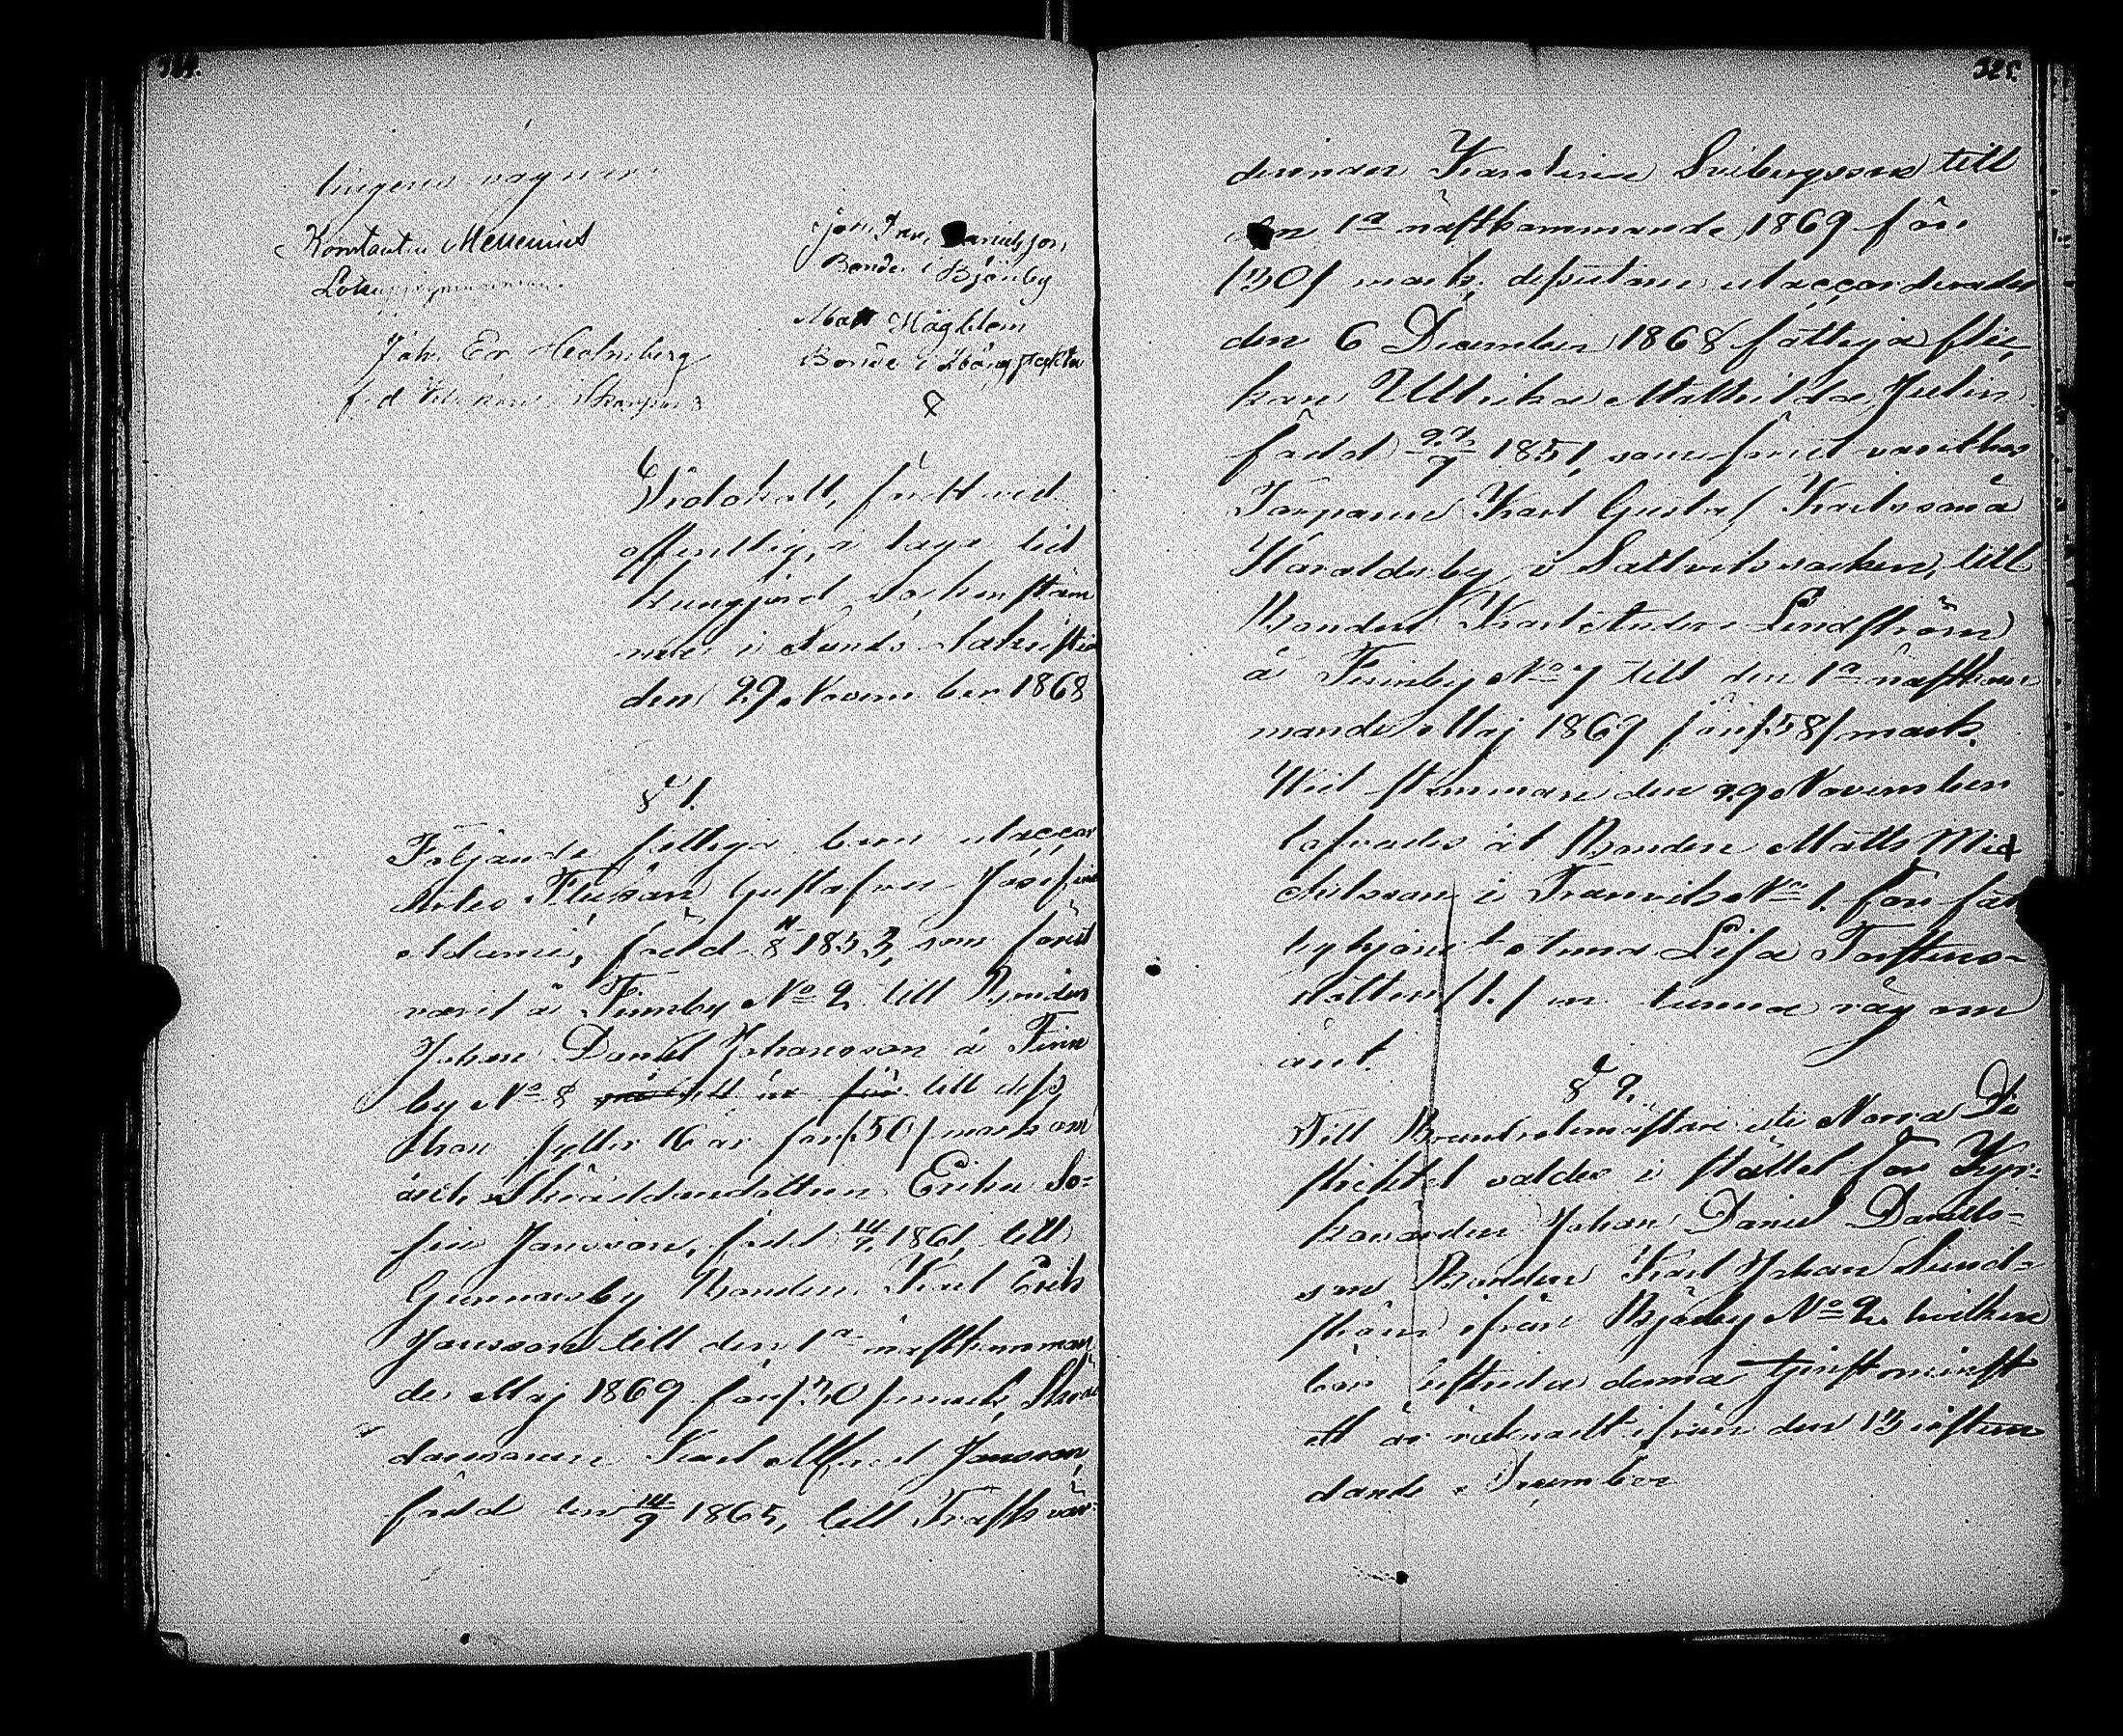 324.
tingens vägnar:
Konstantin Mesenius
Johan Danielsson
Bonde i Bjärby
Matts Högblom
Bonde i Högbolsta
Joh. Er. Holmberg
f. d.
Protokoll, fördt vid
offentlig, i laga tid
kungjord Sockenstäm
ma i Sunds Sakristia
den 29 November 1868
§ 1.
Följande fattiga barn utaccor
derades: Flickan Gustafva Josefina
född 1853, som förut
varit å Finnby No 2 till Bonden
Johan Daniel Johansson å Finn
by No 8 till dess
hon fyller 16 år för /50/ mark om
året, Skräddaredottren Erika So-
fia Jansson, född 1861 till
Gunnarsby Bonden Karl Erik
Jansson till den 1a nästkomman
de Maj 1869 för /30/ mark, Skräd
daresonen Karl Alfred Jansson,
född den 14/9 1865, till
325.
derinnan Karolina Sviberg till
den 1a nästkommande 1869 för
/30/ mark; utaccorderades
den 6 December 1868 fattiga flic-
kan Ulrika Mathilda Julin
född 27/7 1851, som förut varit hos
Torparen Karl Gustaf Karlsson å
Haraldsby i Saltviks socken, till
Bonden Karl Anders Lindström
å Finnby No 7 till den 1a nästkom
mande Maj 1869 för /58/ mark.
Vid stämman den 29 November
lofvades åt Bonden Matts Mic
kelsson i Tranvik No 1. för fat
tighjonet Lisa Torstens-
dotter /1./ en tunna råg om
året.
§ 2.
Till Brandrotemästare i Norra Di
striktet valdes i stället för Kyr-
kovärden Johan Daniel Daniels-
son Bonden Karl Johan Lund-
ström ifrån Bjärby No 2, hvilken
bör tillträda denna tjenst
ett år räknadt ifrån den 13 instun
dande December